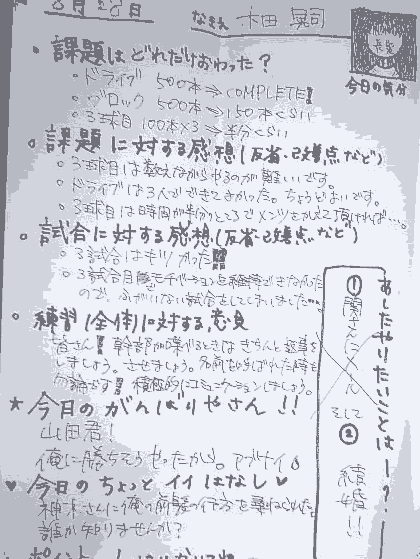 8月28日
なまえ 木田 晃司
今日の気分
・課題はどれだけおわった?
・ドライブ 500本⇒COMPLETE!!
・ブロック 500本⇒150本くらい
・3球目 100本×3⇒半分くらい
・課題に対する感想(反省・改善点など)
・3球目は数えながらやるのが難しいです。
・ドライブは3人でできてよかった。ちょうどよいです。
・3球目は時間が半分のところでメンツをかえて頂ければ…。
・試合に対する感想(反省・改善点など)
・3試合はキツかった!!!
・3試合目
ので、ふがいない試合をしてしまいました…。
・練習(全体)に対する意見
皆さん!!幹部が喋るときはきちんと返事を
しましょう。させましょう。名前を呼ばれた時も
勿論です!!積極的にコミュニケーションしましょう。
★今月のがんばりやさん!!
山田君!
俺に勝ちそうやったから。アブナイ
♥今日のちょっとイイはなし♥
神木さんに俺の前髪の行方を尋ねられた。
誰か知りませんか?
あしたやりたいことはー?
①
そして
② 結婚!!